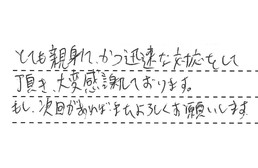 とても親身で、かつ迅速な対応をして
頂き、大変感謝しております。
もし、次回があればまたよろしくお願いします